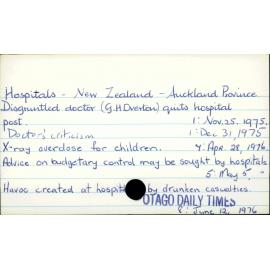 Hospitals - New Zealand - Auckland Province
Disgruntled doctor (G.H.Overton) quits hospital
post. 1: Nov. 25. 1975.
Doctor's criticism 1: Dec 31, 1975
X-ray overdose for children. 4: Apr. 28, 1976.
Advice on budgetary control may be sought by hospitals.
5: May 5, "
Havoc created at hospital by drunken casualties.
OTAGO DAILY TIMES
8: June 12, 1976